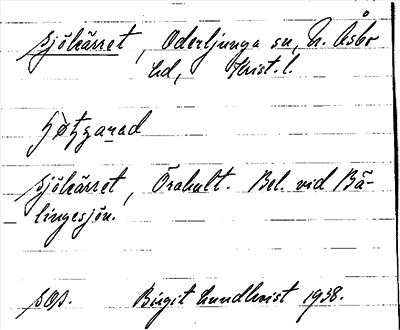 Sjökärret, Oderljunga sn, N. Åsbo
hd, Krist. l.
Sjökärret, Örahult. Bel. vid Bä-
lingesjön.
Birgit Lundkvist 1938.